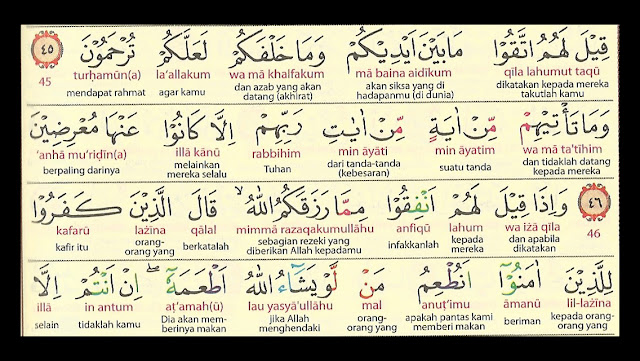 قِيْلَ لَهُمُ اتَّقُوْا مَا بَيْنَ اَيْدِيْكُمْ وَمَا خَلْفَكُمْ لَعَلَّكُمْ تُرْحَمُوْنَ ٤٥
qīla lahumut taqū mā baina aidīkum wa mā khalfakum la'allakum turḥamūn(a) 45
dikatakan kepada mereka takutlah kamu akan siksa yang di hadapanmu (di dunia) dan azab yang akan datang (akhirat) agar kamu mendapat rahmat
وَمَا تَأْتِيْهِمْ مِّنْ اٰيَةٍ مِّنْ اٰيٰتِ رَبِّهِمْ اِلَّا كَانُوْا عَنْهَا مُعْرِضِيْنَ
wa mā ta'tīhim min āyatim min āyāti rabbihim illā kānū 'anhā mu'riḍīn(a)
dan tidaklah datang kepada mereka suatu tanda dari tanda-tanda (kebesaran) Tuhan melainkan mereka selalu berpaling darinya
٤٦ وَاِذَا قِيْلَ لَهُمْ اَنْفِقُوْا مِمَّا رَزَقَكُمُ اللّٰهُ ۙ قَالَ الَّذِيْنَ كَفَرُوْا
46 wa iżā qīla lahum anfiqū mimmā razaqakumullāhu qālal lażīna kafarū
dan apabila dikatakan kepada mereka infakkanlah sebagian rezeki yang diberikan Allah kepadamu berkatalah orang-orang yang kafir itu
لِلَّذِيْنَ اٰمَنُوْٓا اَنُطْعِمُ مَنْ لَّوْ يَشَاۤءُ اللّٰهُ اَطْعَمَهٗٓ ۖ اِنْ اَنْتُمْ اِلَّا
lil-lażīna āmanū anuṭ'imu mal lau yasyā'ullāhu aṭ'amah(ū) in antum illā
kepada orang-orang yang beriman apakah pantas kami memberi makan orang-orang yang jika Allah menghendaki Dia akan memberinya makan tidaklah kamu selain